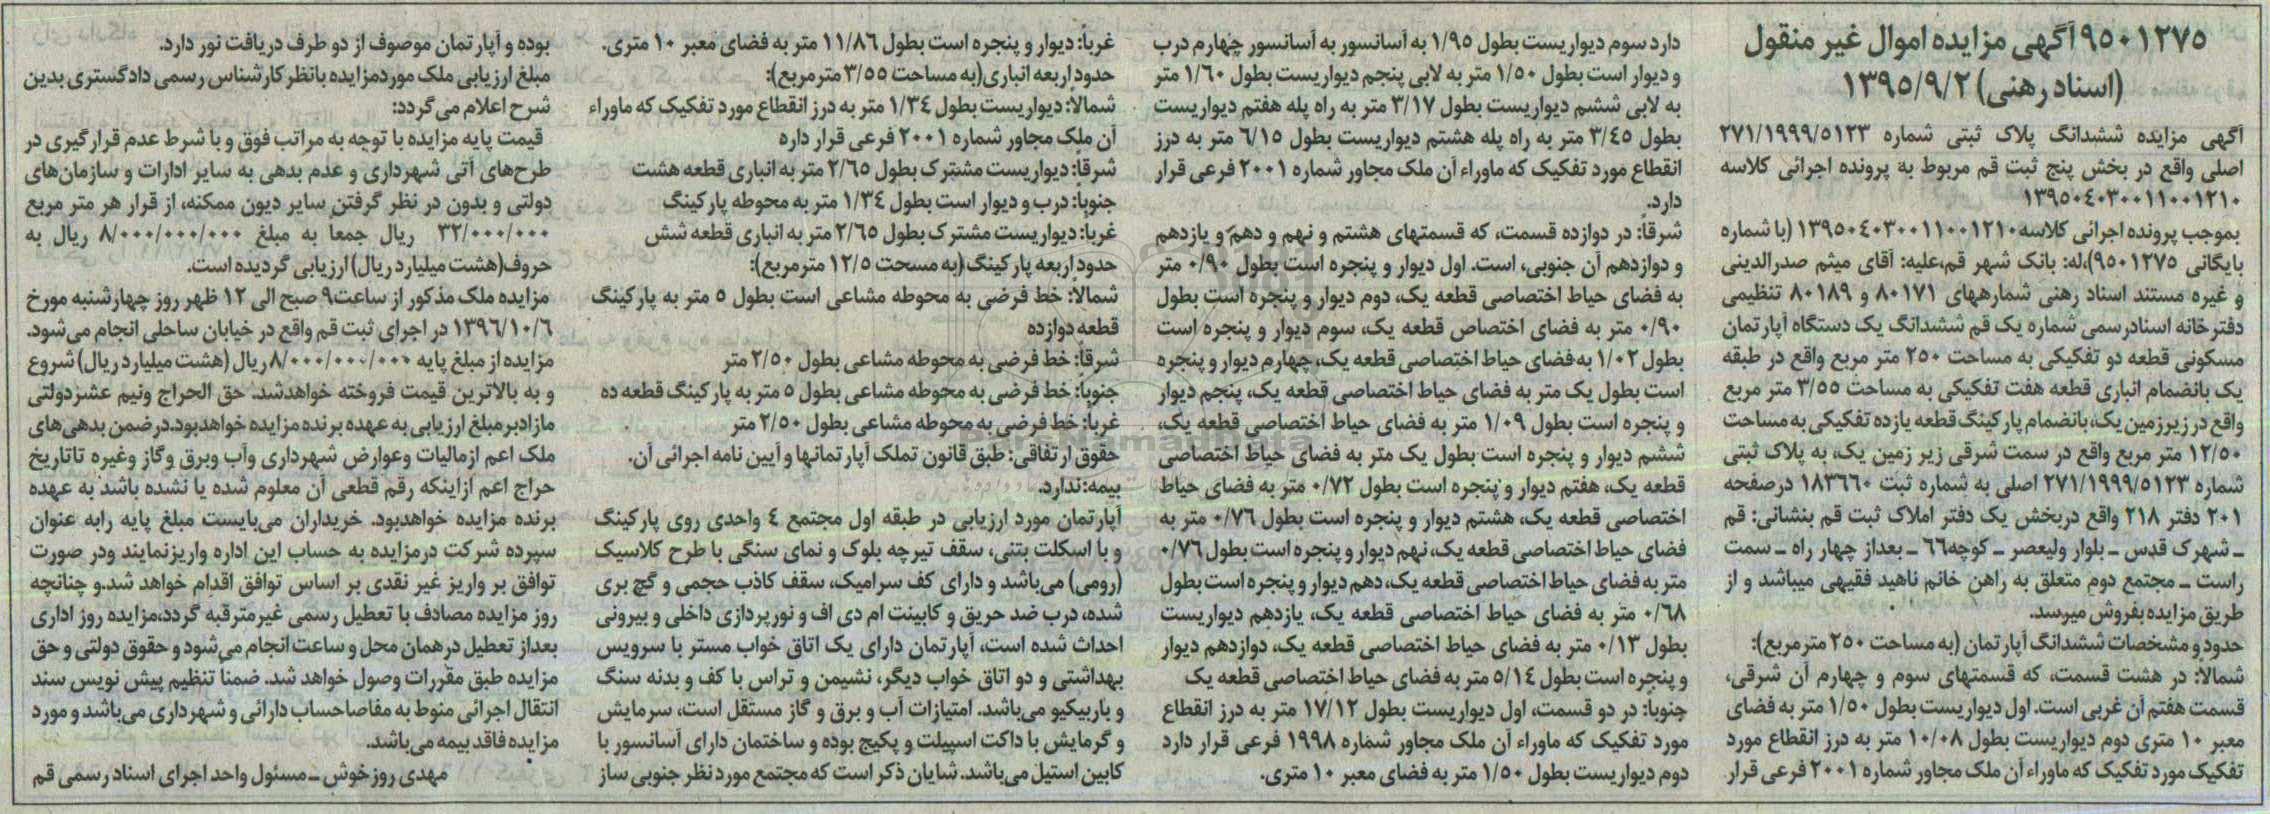 ۹۵۰۱۲۷۵ آگهی مزایده اموال غیر منقول
(اسناد رهنی) ۱۳۹۵/۹/۲
آگهی مزایده ششدانگ پلاک ثبتی شماره ۲۷۱/۱۹۹۹/۵۱۲۳
اصلی واقع در بخش پنج ثبت قم مربوط به پرونده اجرائی کلاسه
۱۳۹۵۰۴۰۳۰۰۱۱۰۰۱۲۱۰
بموجب پرونده اجرائی کلاسه۱۳۹۵۰۴۰۳۰۰۱۱۰۰۱۲۱۰ (با شماره
بایگانی ۹۵۰۱۲۷۵)،له: بانک شهر قم،علیه: آقای میثم صدرالدینی
و غیره مستند اسناد رهنی شمارههای ۸۰۱۷۱ و ۸۰۱۸۹ تنظیمی
دفترخانه اسنادرسمی شماره یک قم ششدانگ یک دستگاه آپارتمان
مسکونی قطعه دو تفکیکی به مساحت ۲۵۰ متر مربع واقع در طبقه
یک بانضمام انباری قطعه هفت تفکیکی به مساحت ۳/۵۵ متر مربع
واقع در زیرزمین یک، بانضمام پارکینگ قطعه یازده تفکیکی به مساحت
۱۲/۵۰ متر مربع واقع در سمت شرقی زیر زمین یک، به پلاک ثبتی
شماره ۲۷۱/۱۹۹۹/۵۱۲۳ اصلی به شماره ثبت ۱۸۳۶۶۰ درصفحه
۲۰۱ دفتر ۲۱۸ واقع دربخش یک دفتر املاک ثبت قم بنشانی: قم
ـ شهرک قدس ـ بلوار ولیعصر ـ کوچه۶۶ ـ بعداز چهار راه ـ سمت
راست ـ مجتمع دوم متعلق به راهن خانم ناهید فقیهی میباشد و از
طریق مزایده بفروش میرسد.
حدود و مشخصات ششدانگ آپارتمان (به مساحت ۲۵۰ مترمربع):
شمالاً: در هشت قسمت، که قسمتهای سوم و چهارم آن شرقی،
قسمت هفتم آن غربی است. اول دیواریست بطول ۱/۵۰ متر به فضای
معبر ۱۰ متری دوم دیواریست بطول ۱۰/۰۸ متر به درز انقطاع مورد
تفکیک مورد تفکیک که ماوراء آن ملک مجاور شماره ۲۰۰۱ فرعی قرار
دارد سوم دیواریست بطول ۱/۹۵ به آسانسور به آسانسور چهارم درب
و دیوار است بطول ۱/۵۰ متر به لابی پنجم دیواریست بطول ۱/۶۰ متر
به لابی ششم دیواریست بطول ۳/۱۷ متر به راه پله هفتم دیواریست
بطول ۳/۴۵ متر به راه پله هشتم دیواریست بطول ۶/۱۵ متر به درز
انقطاع مورد تفکیک که ماوراء آن ملک مجاور شماره ۲۰۰۱ فرعی قرار
دارد.
شرقاً: در دوازده قسمت، که قسمتهای هشتم و نهم و دهم و یازدهم
و دوازدهم آن جنوبی، است. اول دیوار و پنجره است بطول ۰/۹۰ متر
به فضای حیاط اختصاصی قطعه یک، دوم دیوار و پنجره است بطول
۰/۹۰ متر به فضای اختصاص قطعه یک، سوم دیوار و پنجره است
بطول ۱/۰۲ به‌فضای حیاط اختصاصی قطعه یک، چهارم دیوار و پنجره
است بطول یک متر به فضای حیاط اختصاصی قطعه یک، پنجم دیوار
و پنجره است بطول ۱/۰۹ متر به فضای حیاط اختصاصی قطعه یک،
ششم دیوار و پنجره است بطول یک متر به فضای حیاط اختصاصی
قطعه یک، هفتم دیوار و پنجره است بطول ۰/۷۲ متر به فضای حیاط
اختصاصی قطعه یک، هشتم دیوار و پنجره است بطول ۰/۷۶ متر به
فضای حیاط اختصاصی قطعه یک، نهم دیوار و پنجره است بطول ۰/۷۶
متر به فضای حیاط اختصاصی قطعه یک، دهم دیوار و پنجره است بطول
۰/۶۸ متر به فضای حیاط اختصاصی قطعه یک، یازدهم دیواریست
بطول ۰/۱۳ متر به فضای حیاط اختصاصی قطعه یک، دوازدهم دیوار
و پنجره است بطول ۵/۱۴ متر به فضای حیاط اختصاصی قطعه یک
جنوباً: در دو قسمت، اول دیواریست بطول ۱۷/۱۲ متر به درز انقطاع
مورد تفکیک که ماوراء آن ملک مجاور شماره ۱۹۹۸ فرعی قرار دارد
دوم دیواریست بطول ۱/۵۰ متر به فضای معبر ۱۰ متری.
غرباً: دیوار و پنجره است بطول ۱۱/۸۶ متر به فضای معبر ۱۰ متری.
حدود اربعه انباری(به مساحت ۳/۵۵ مترمربع):
شمالاً: دیواریست بطول ۱/۳۴ متر به درز انقطاع مورد تفکیک که ماوراء
آن ملک مجاور شماره ۲۰۰۱ فرعی قرار داره
شرقاً: دیواریست مشترک بطول ۲/۶۵ متر به انباری قطعه هشت
جنوباً: درب و دیوار است بطول ۱/۳۴ متر به محوطه پارکینگ
غرباً: دیواریست مشترک بطول ۲/۶۵ متر به انباری قطعه شش
حدود اربعه پارکینگ (به مسحت ۱۲/۵ مترمربع):
شمالاً: خط فرضی به محوطه مشاعی است بطول ۵ متر به پارکینگ
قطعه دوازده
شرقاً: خط فرضی به محوطه مشاعی بطول ۲/۵۰ متر
جنوباً: خط فرضی به محوطه مشاعی بطول ۵ متر به پارکینگ قطعه ده
غرباً: خط فرضی به محوطه مشاعی بطول ۲/۵۰ متر
حقوق ارتفاقی: طبق قانون تملک آپارتمانها و آیین نامه اجرائی آن.
بیمه: ندارد.
آپارتمان مورد ارزیابی در طبقه اول مجتمع ۴ واحدی روی پارکینگ
و با اسکلت بتنی، سقف تیرچه بلوک و نمای سنگی با طرح کلاسیک
(رومی) می‌باشد و دارای کف سرامیک، سقف کاذب حجمی و گچ بری
شده، درب ضد حریق و کابینت ام دی اف و نورپردازی داخلی و بیرونی
احداث شده است، آپارتمان دارای یک اتاق خواب مستر با سرویس
بهداشتی و دو اتاق خواب دیگر، نشیمن و تراس با کف و بدنه سنگ
و باربیکیو می‌باشد. امتیازات آب و برق و گاز مستقل است، سرمایش
و گرمایش با داکت اسپیلت و پکیج بوده و ساختمان دارای آسانسور با
کابین استیل می‌باشد. شایان ذکر است که مجتمع مورد نظر جنوبی ساز
بوده و آپارتمان موصوف از دو طرف دریافت نور دارد.
مبلغ ارزیابی ملک موردمزایده بانظر کارشناس رسمی دادگستری بدین
شرح اعلام می‌گردد:
قیمت پایه مزایده با توجه به مراتب فوق و با شرط عدم قرارگیری در
طرح‌های آتی شهرداری و عدم بدهی به سایر ادارات و سازمان‌های
دولتی و بدون در نظر گرفتن سایر دیون ممکنه، از قرار هر متر مربع
۳۲/۰۰۰/۰۰۰ ریال جمعاً به مبلغ ۸/۰۰۰/۰۰۰/۰۰۰ ریال به
حروف(هشت میلیارد ریال) ارزیابی گردیده است.
مزایده ملک مذکور از ساعت۹ صبح الی ۱۲ ظهر روز چهارشنبه مورخ
۱۳۹۶/۱۰/۶ در اجرای ثبت قم واقع در خیابان ساحلی انجام می‌شود.
مزایده از مبلغ پایه ۸/۰۰۰/۰۰۰/۰۰۰ ریال (هشت میلیارد ریال) شروع
و به بالاترین قیمت فروخته خواهدشد. حق الحراج ونیم عشردولتی
مازادبرمبلغ ارزیابی به عهده برنده مزایده خواهدبود.درضمن بدهی‌های
ملک اعم ازمالیات وعوارض شهرداری وآب وبرق وگاز وغیره تاتاریخ
حراج اعم ازاینکه رقم قطعی آن معلوم شده یا نشده باشد به عهده
برنده مزایده خواهدبود. خریداران می‌بایست مبلغ پایه رابه عنوان
سپرده شرکت درمزایده به حساب این اداره واریزنمایند ودر صورت
توافق بر واریز غیر نقدی بر اساس توافق اقدام خواهد شد.و چنانچه
روز مزایده مصادف با تعطیل رسمی غیرمترقبه گردد،مزایده روز اداری
بعداز تعطیل درهمان محل و ساعت انجام می‌شود و حقوق دولتی و حق
مزایده طبق مقررات وصول خواهد شد. ضمناً تنظیم پیش نویس سند
انتقال اجرائی منوط به مفاصاحساب دارائی و شهرداری می‌باشد و مورد
مزایده فاقد بیمه می‌باشد.
مهدی روزخوش ـ مسئول واحد اجرای اسناد رسمی قم
ParsNamadData